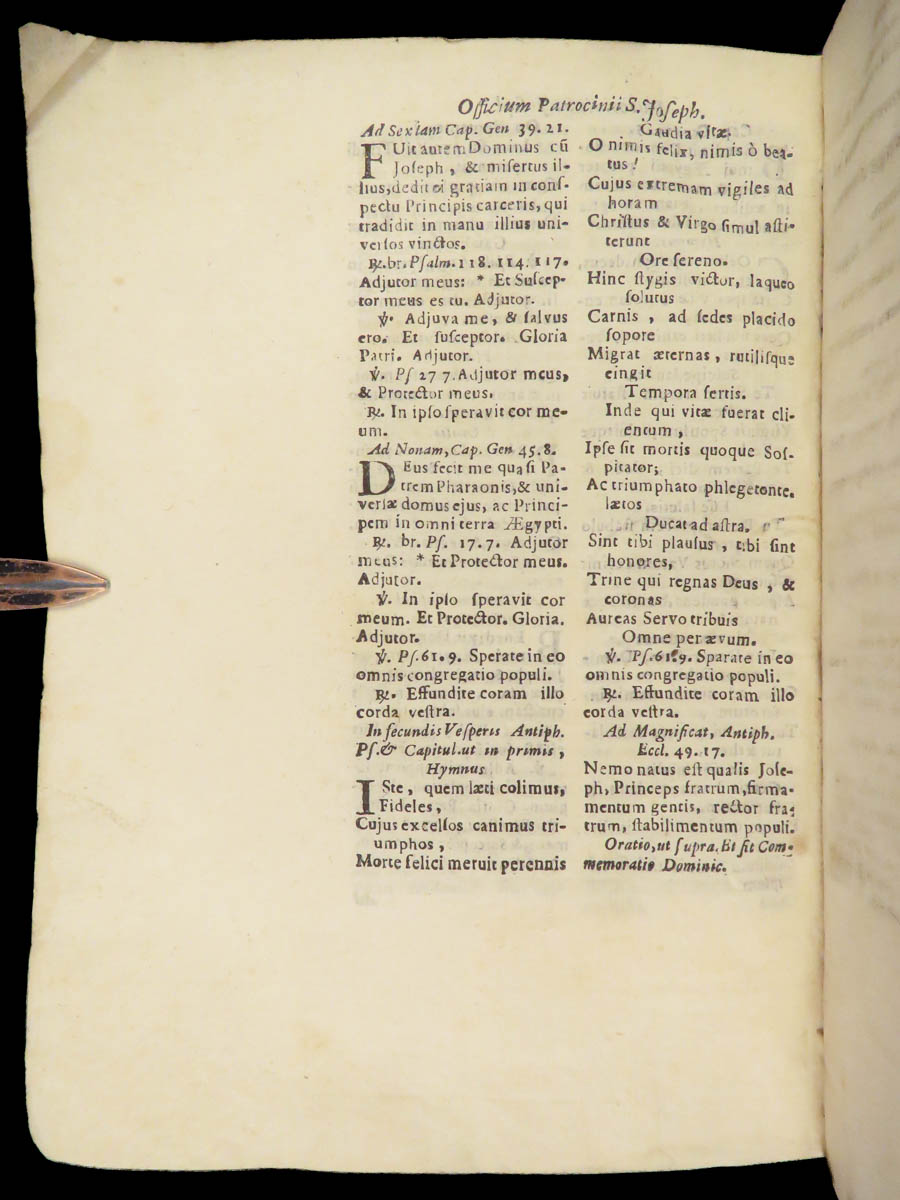 Officium Patrocinii S. Joſeph.
Ad Sextam Cap. Gen 39. 21.
FUit autem Dominus cū
Joſeph, & miſertus il-
lius, dedit ei gratiam in conſ-
pectu Principis carceris, qui
tradidit in manu illius uni-
verſos vinctos.
℟. br. Pſalm. 118. 114. 117.
Adjutor meus: * Et Suſcep-
tor meus es tu. Adjutor.
℣. Adjuva me, & ſalvus
ero. Et ſuſceptor. Gloria
Patri. Adjutor.
℣. Pſ 27 7. Adjutor meus,
& Protector meus.
℟. In ipſo ſperavit cor me-
um.
Ad Nonam, Cap. Gen 45. 8.
DEus fecit me quaſi Pa-
trem Pharaonis, & uni-
verſæ domus ejus, ac Princi-
pem in omni terra Ægypti.
℟. br. Pſ. 17. 7. Adjutor
meus: * Et Protector meus.
Adjutor.
℣. In ipſo ſperavit cor
meum. Et Protector. Gloria.
Adjutor.
℣. Pſ. 61. 9. Sperate in eo
omnis congregatio populi.
℟. Effundite coram illo
corda veſtra.
In ſecundis Veſperis Antiph.
Pſ. & Capitul. ut in primis,
Hymnus
ISte, quem læti colimus,
Fideles,
Cujus excelſos canimus tri-
umphos,
Morte felici meruit perennis
Gaudia vitæ.
O nimis felix, nimis ò bea-
tus!
Cujus extremam vigiles ad
horam
Chriſtus & Virgo ſimul aſti-
terunt
Ore ſereno.
Hinc ſtygis victor, laqueo
ſolutus
Carnis, ad ſedes placido
ſopore
Migrat æternas, rutiliſque
cingit
Tempora ſertis.
Inde qui vitæ fuerat cli-
entum,
Ipſe ſit mortis quoque Soſ-
pitator;
Ac triumphato phlegetonte.
lætos
Ducat ad aſtra.
Sint tibi plauſus, tibi ſint
honores,
Trine qui regnas Deus, &
coronas
Aureas Servo tribuis
Omne per ævum.
℣. Pſ. 61. 9. Sparate in eo
omnis congregatio populi.
℟. Effundite coram illo
corda veſtra.
Ad Magnificat, Antiph.
Eccl. 49. 17.
Nemo natus eſt qualis Joſe-
ph, Princeps fratrum, firma-
mentum gentis, rector fra-
trum, ſtabilimentum populi.
Oratio, ut ſupra. Et fit Com-
memoratio Dominic.